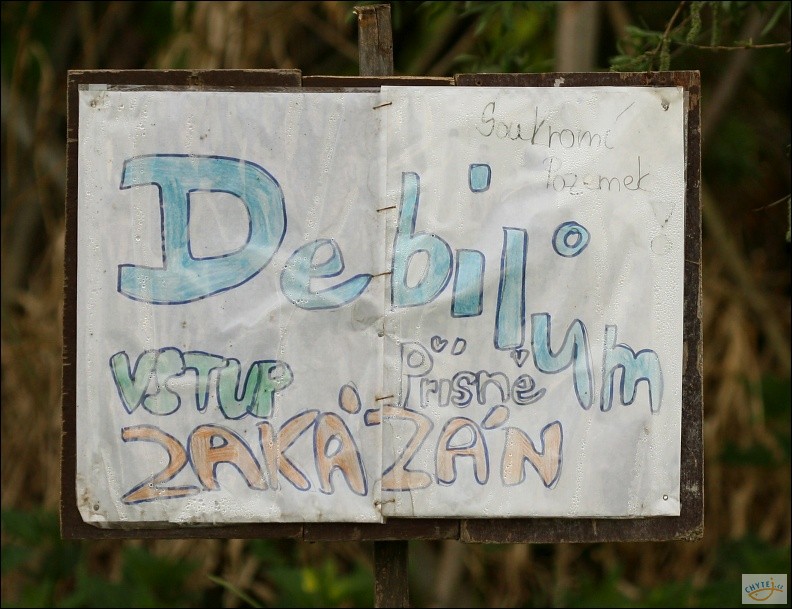 Soukromí
Pozemek
Debilům
VSTUP Přísně
ZAKÁZÁN
CHYTEJ.cz